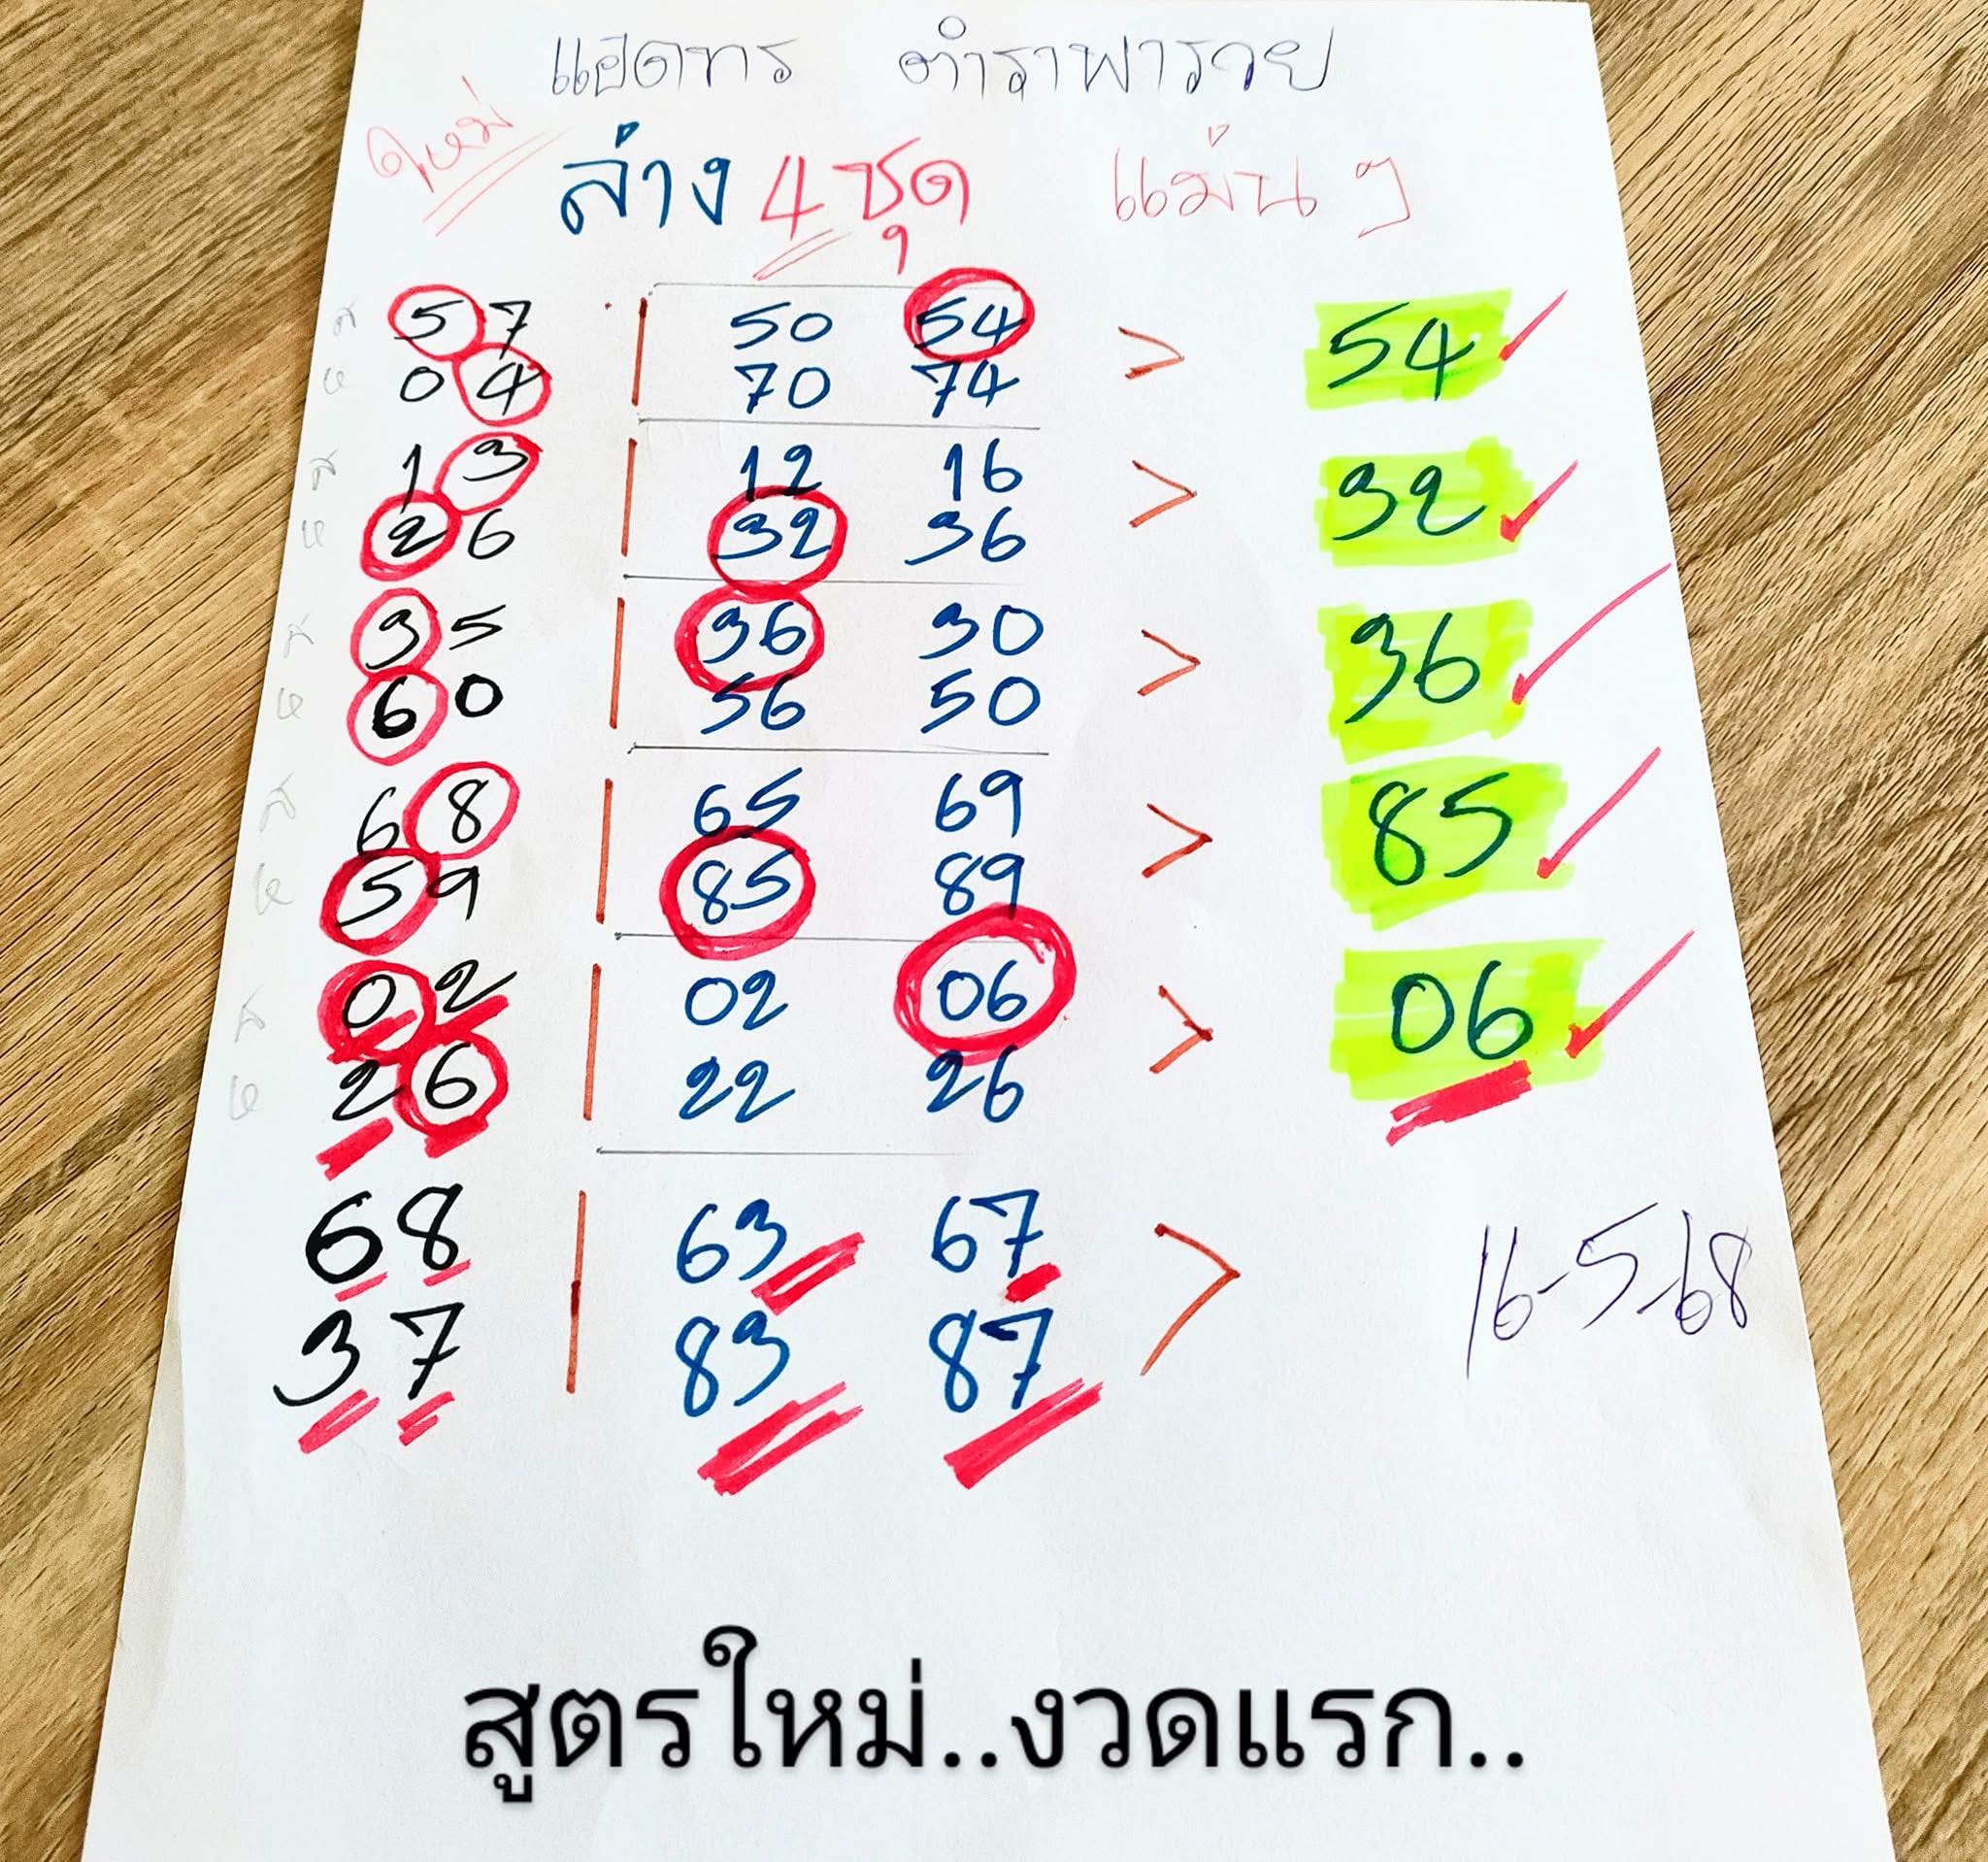 แอดทร ตำราพารวย
ใหม่
ล่าง 4 ชุด แม่น ๆ
ส 5 7 50 54 > 54
ห 0 4 70 74
ส 1 3 12 16 > 32
ห 2 6 32 36
ส 3 5 36 30 > 36
ห 6 0 56 50
ส 6 8 65 69 > 85
ห 5 9 85 89
ส 0 2 02 06 > 06
ห 2 6 22 26
6 8 63 67 > 16-5-68
3 7 83 87
สูตรใหม่..งวดแรก..